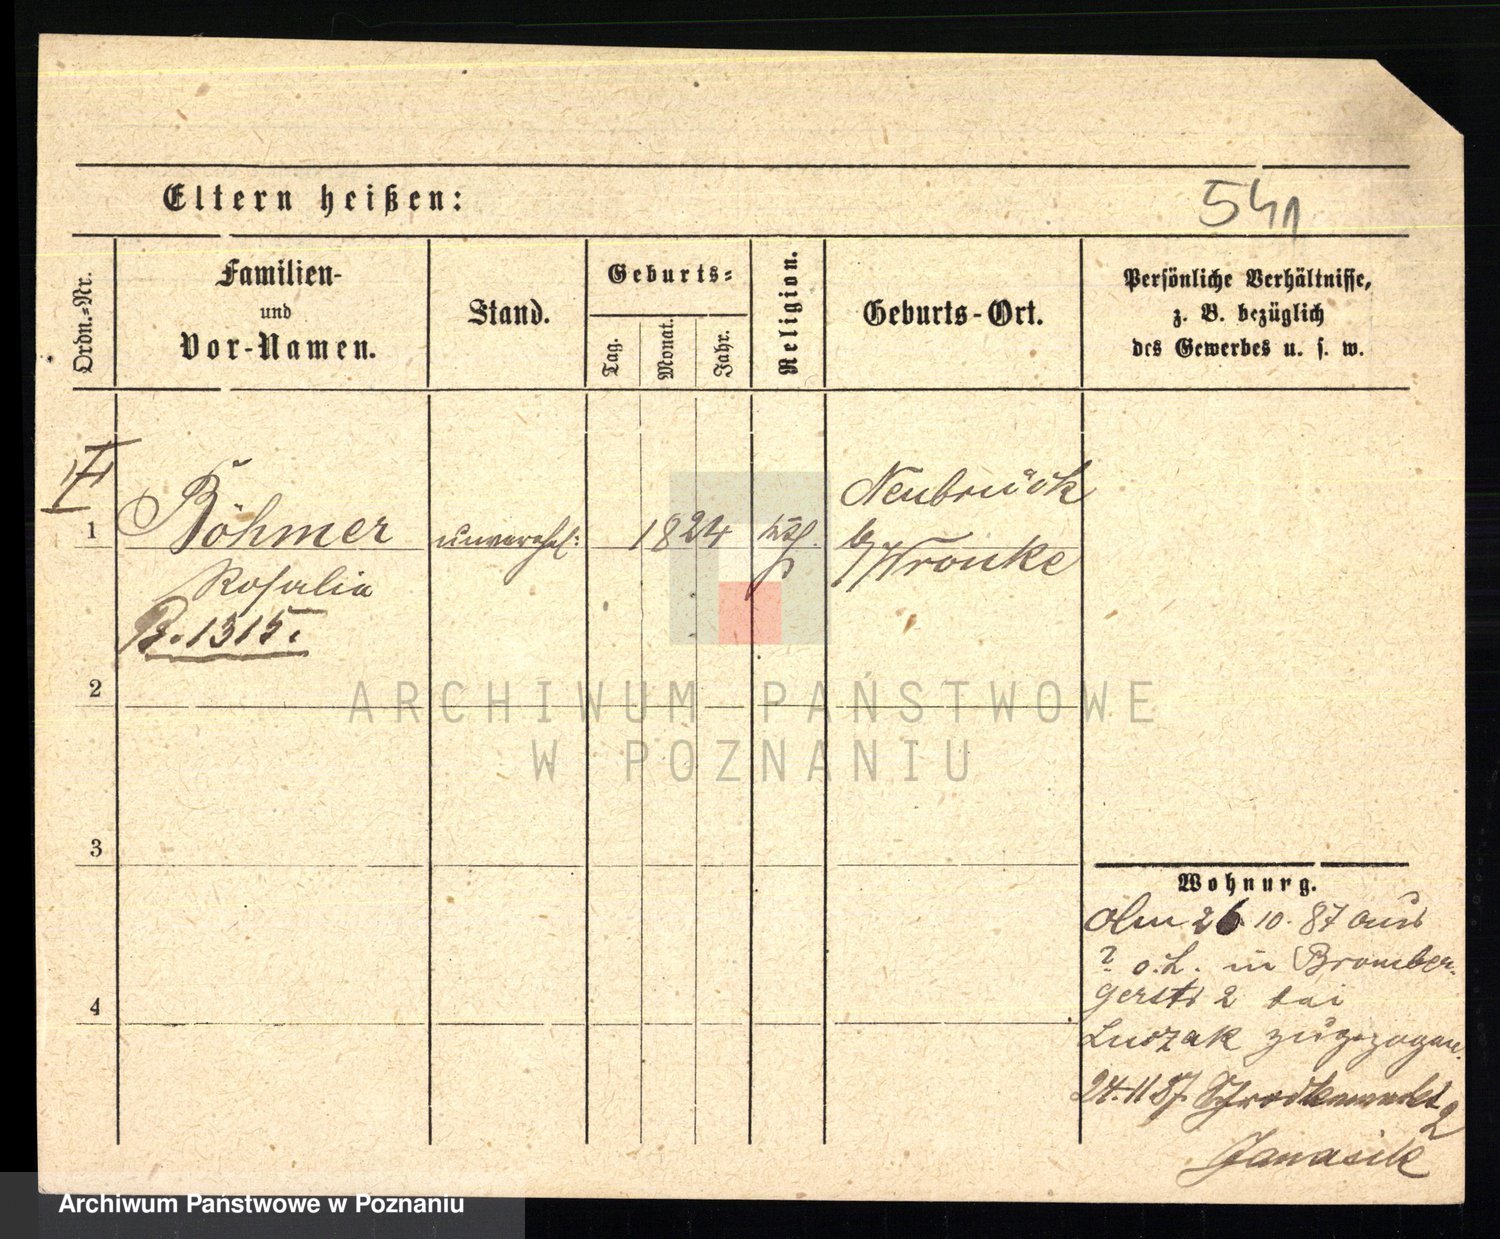 Eltern heißen:
541
Ordn.=Nr.
Familien-
und
Vor-Namen.
Stand.
Geburts=
Tag.
Monat.
Jahr.
Religion.
Geburts-Ort.
Persönliche Verhältnisse,
z. B. bezüglich
des Gewerbes u. s. w.
1
Böhmer
unverehel:
1824
kth.
Neubrück
b/Wronke
Rosalia
B. 1315.
2
3
4
Wohnurg.
Am 26 10. 87 aus
? o.L. in Bromber-
gerstr 2 bei
Luczak zugezogen.
24.11 87. Schrodkamarkt 2
Janasik
ARCHIWUM PAŃSTWOWE
W POZNANIU
Archiwum Państwowe w Poznaniu